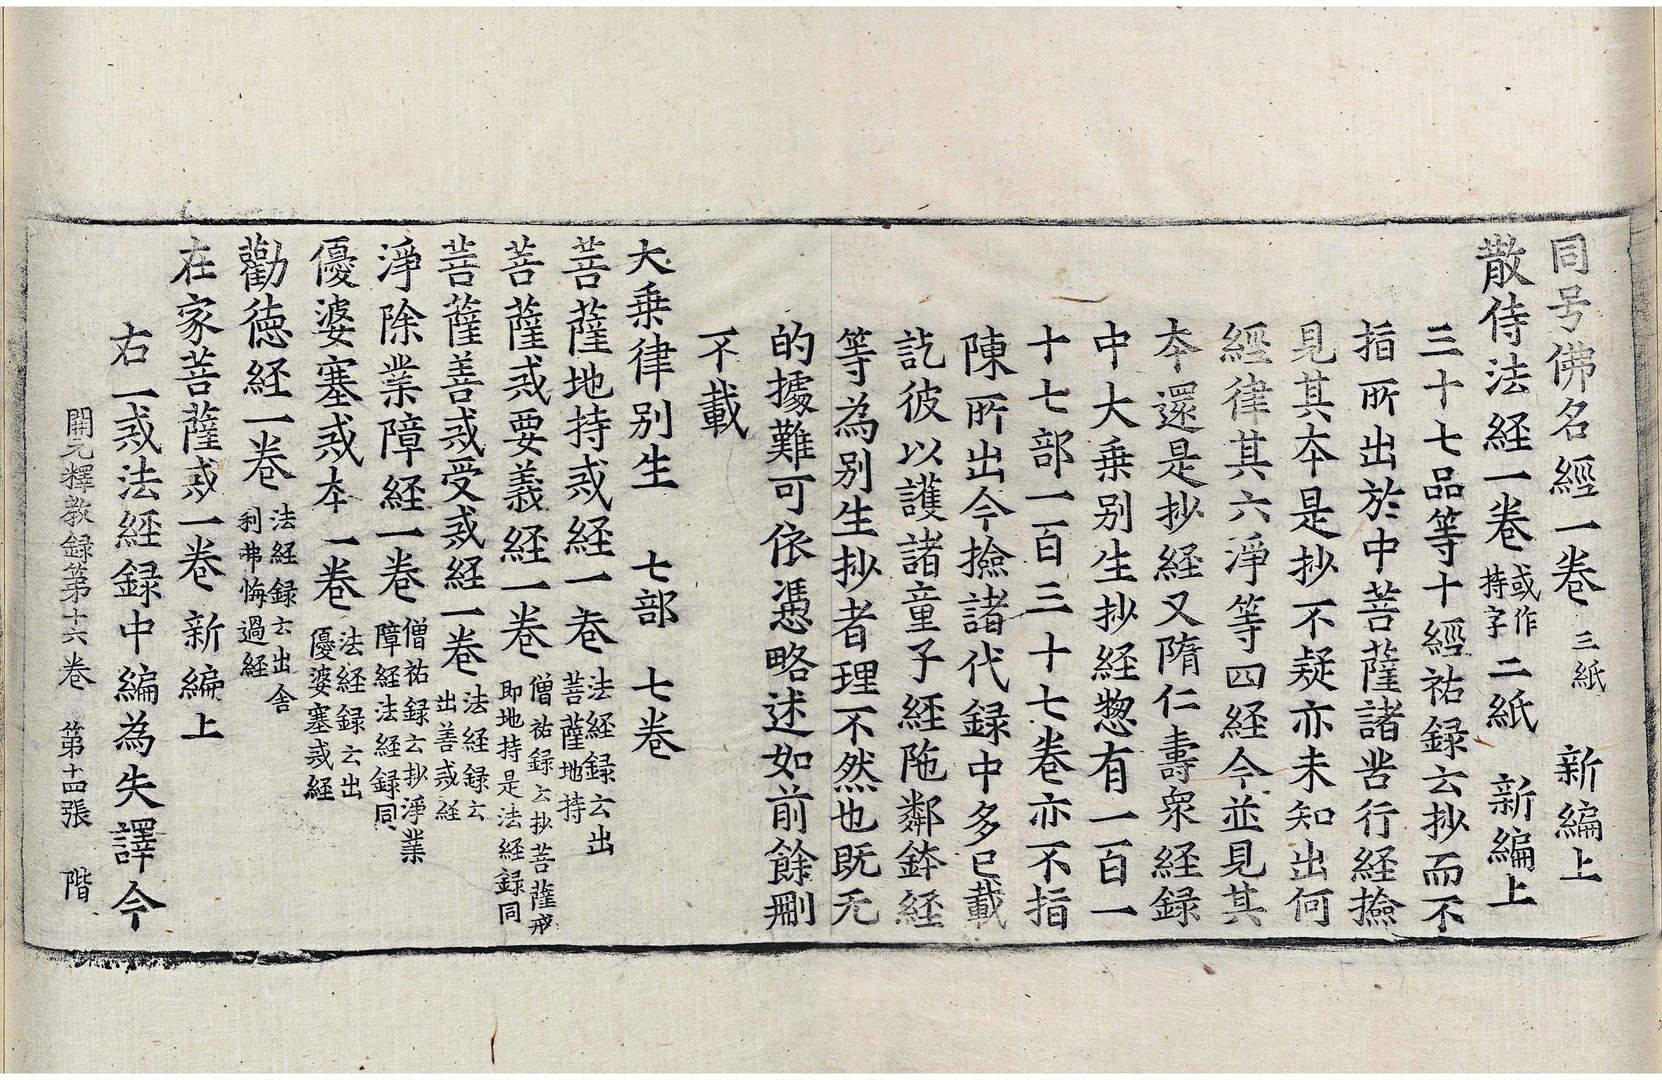 同号佛名經一卷 三紙 新編上
散侍法経一卷 或作持字 二紙 新編上
三十七品等十經祐録云抄而不
指所出於中菩薩諸㘴行経撿
見其夲是抄不疑亦未知出何
經律其六淨等四経今並見其
夲還是抄経又隋仁壽衆経録
中大乗别生抄経惣有一百一
十七部一百三十七卷亦不指
陳所出今撿諸代録中多已載
訖彼以護諸童子經陁鄰鉢経
等為别生抄者理不然也既无
的據難可依憑略述如前餘刪
不載
大乗律别生 七部 七卷
菩薩地持戒経一卷 法経録云出菩薩地持
菩薩戒要義経一卷 僧祐録云抄菩薩戒即地持是法経録同
菩薩善戒受戒経一卷 法経録云出善戒経
淨除業障経一卷 僧祐録云抄淨業障経法経録同
優婆塞戒夲一卷 法経録云出優婆塞戒経
勸徳経一卷 法経録云出舍利弗悔過経
在家菩薩戒一卷 新編上
右一戒法経録中編為失譯今
開元釋教録第十六卷 第十四張 階